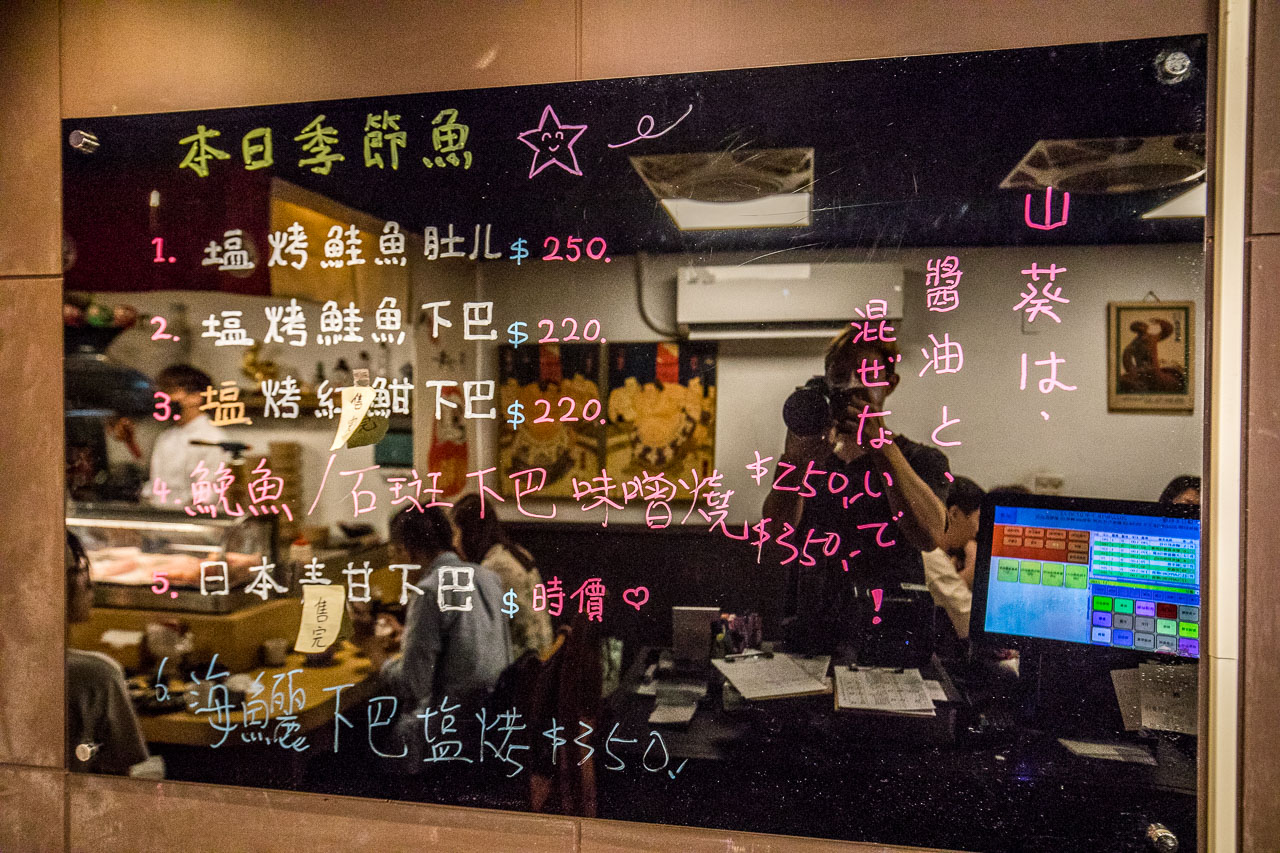 本日季節魚
1. 塩烤鮭魚肚儿 $250.
2. 塩烤鮭魚下巴 $220.
3. 塩烤紅魽下巴 $220.
售完
4. 鮸魚/石斑下巴味噌燒 $250.
$350.
5. 日本青甘下巴 $時價♡
售完
6. 海鱺下巴塩烤 $350.
山葵は、
醬油と、
混ぜないで!